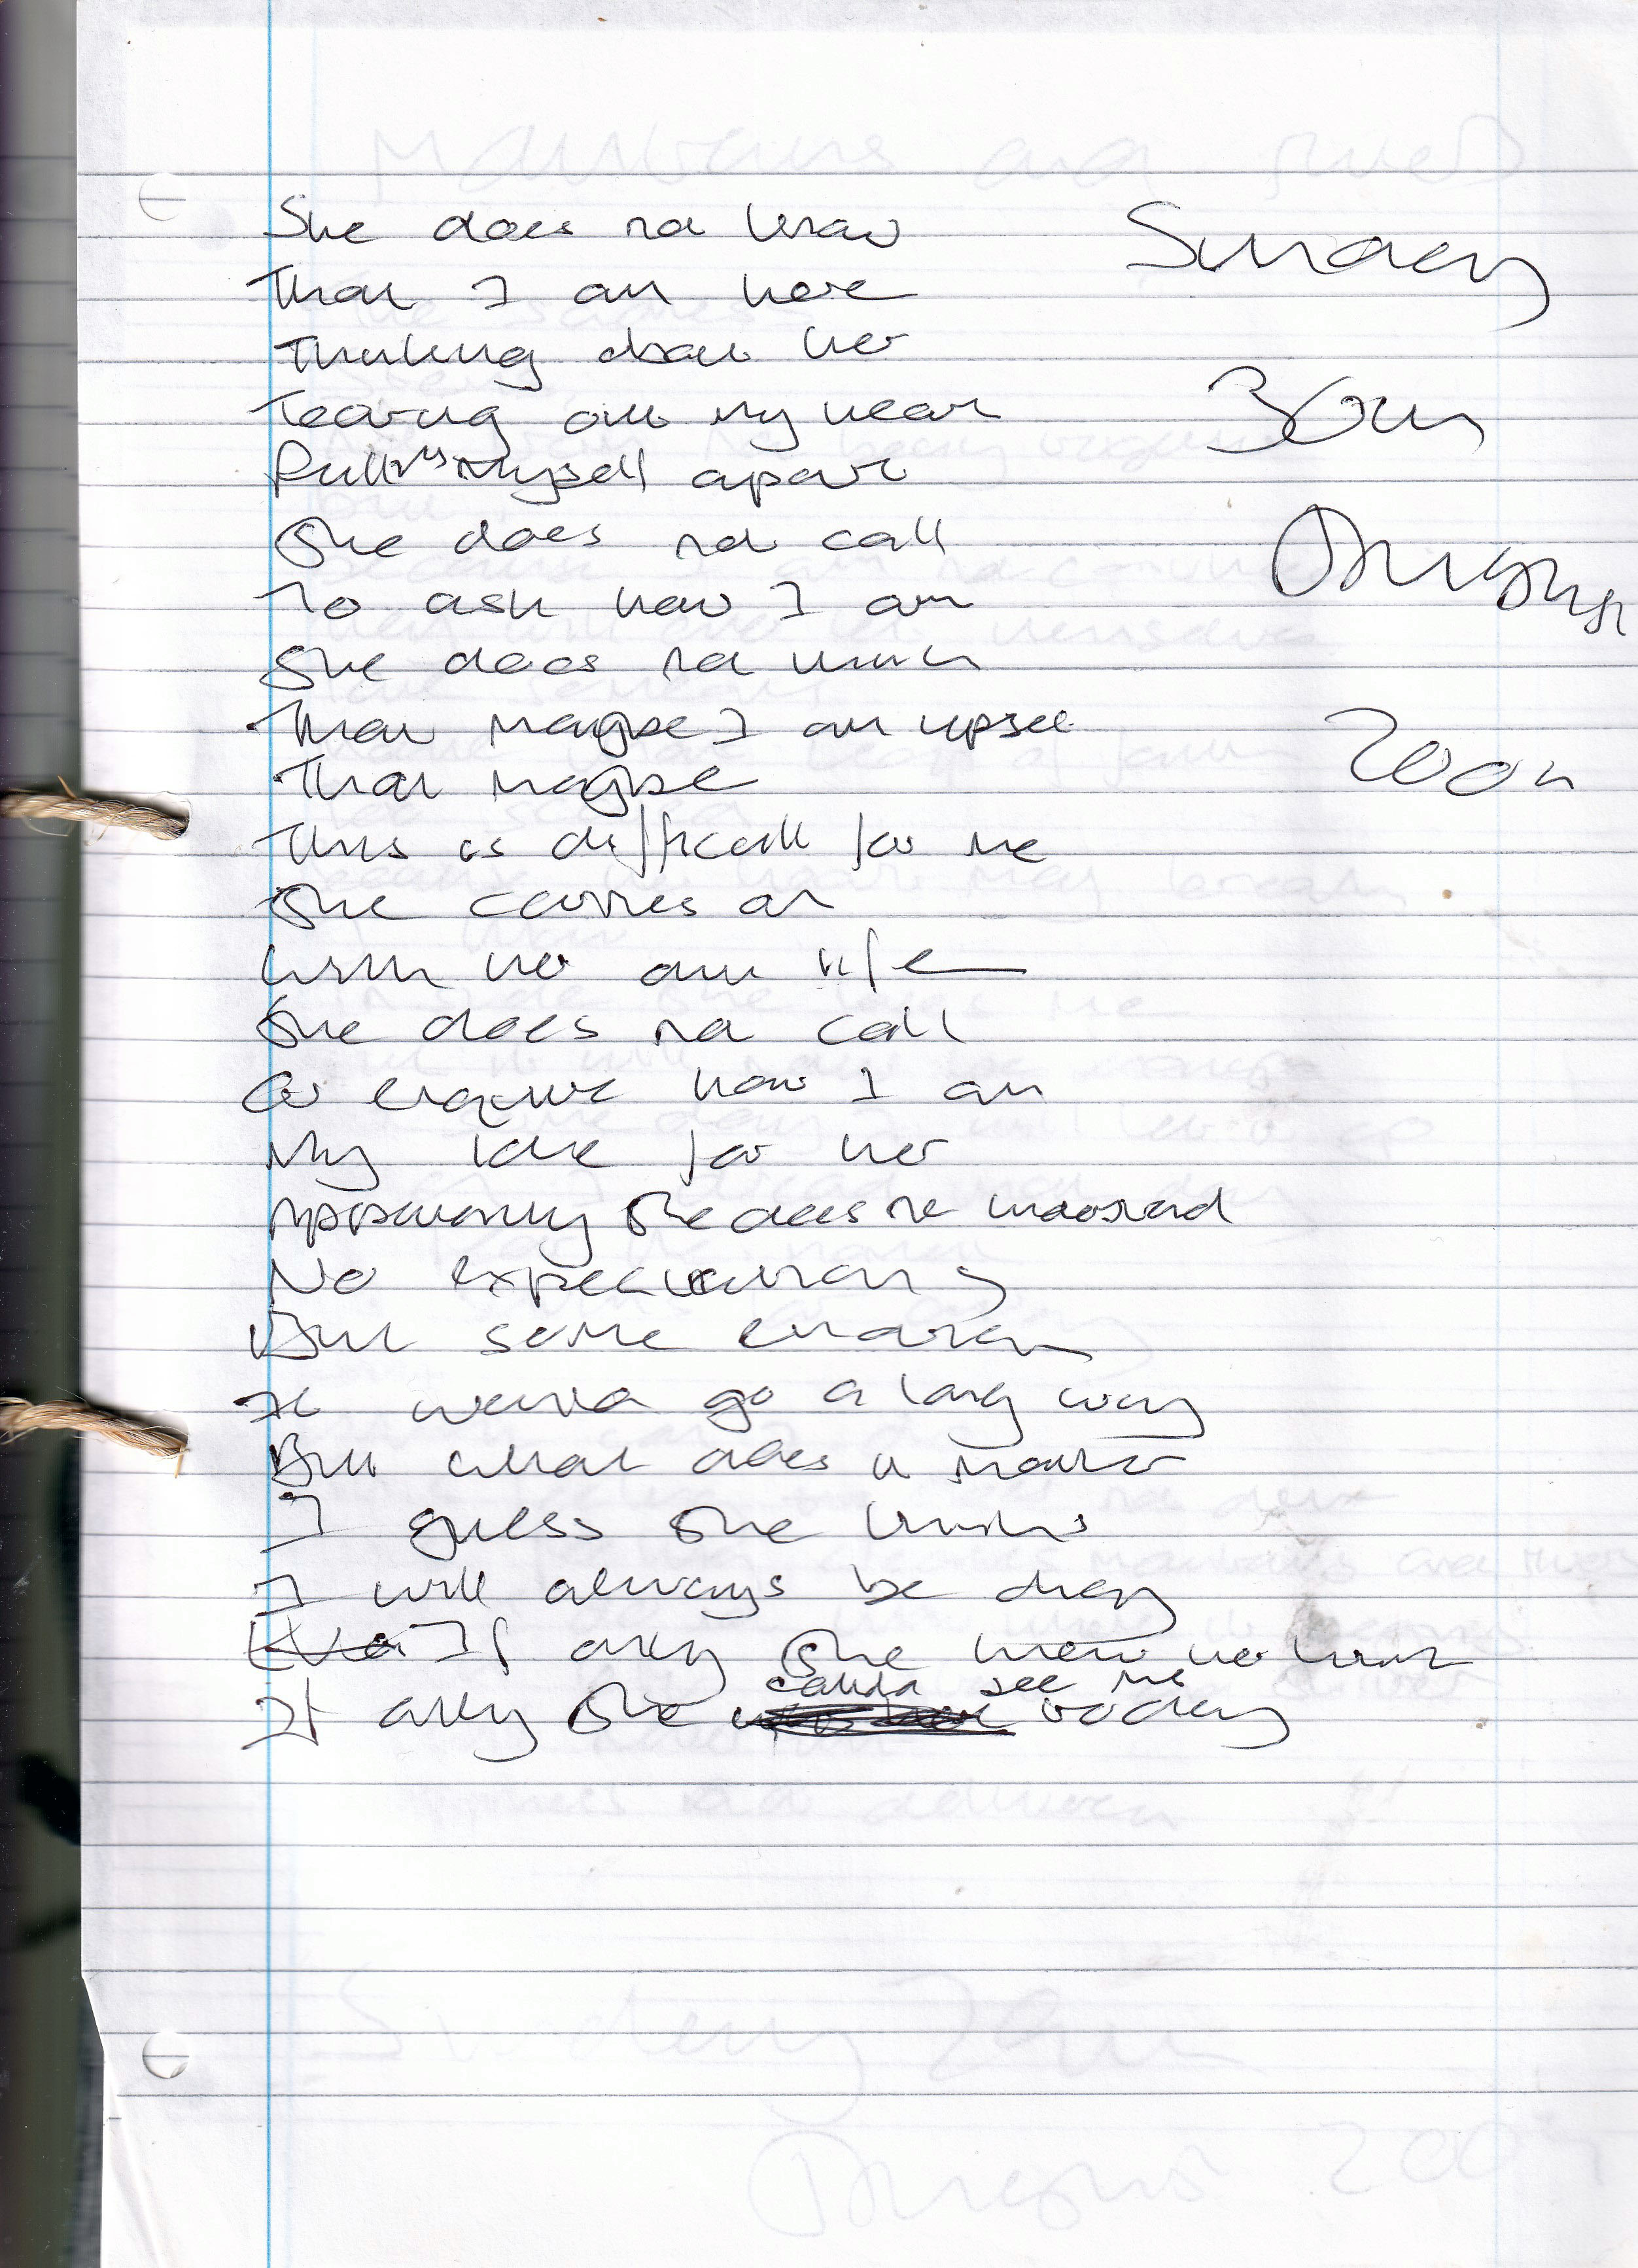 She does not know
That I am here
Thinking about her
Tearing out my heart
Pulling myself apart
She does not call
To ask how I am
She does not think
That maybe I am upset
That maybe
This is difficult for me
She carries on
With her own life
She does not call
Or enquire how I am
My love for her
Apparently she does not understand
No expectations
But some
It would go a long way
But what does it matter
I guess she thinks
I will always be okay
If only she knew the truth
If only she could see me today
Sunday
30th
August
2004